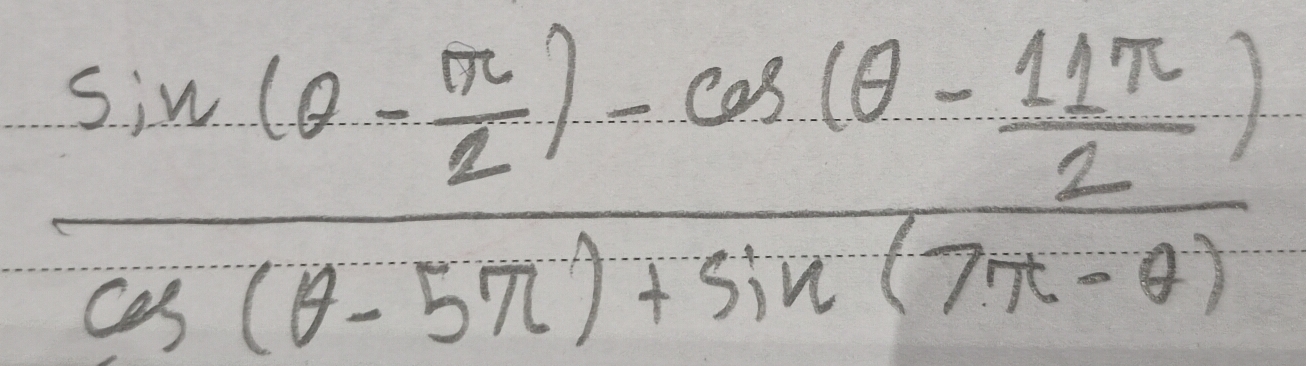 sin (θ - π/2) - cos (θ - 11π/2)
cos (θ - 5π) + sin (7π - θ)